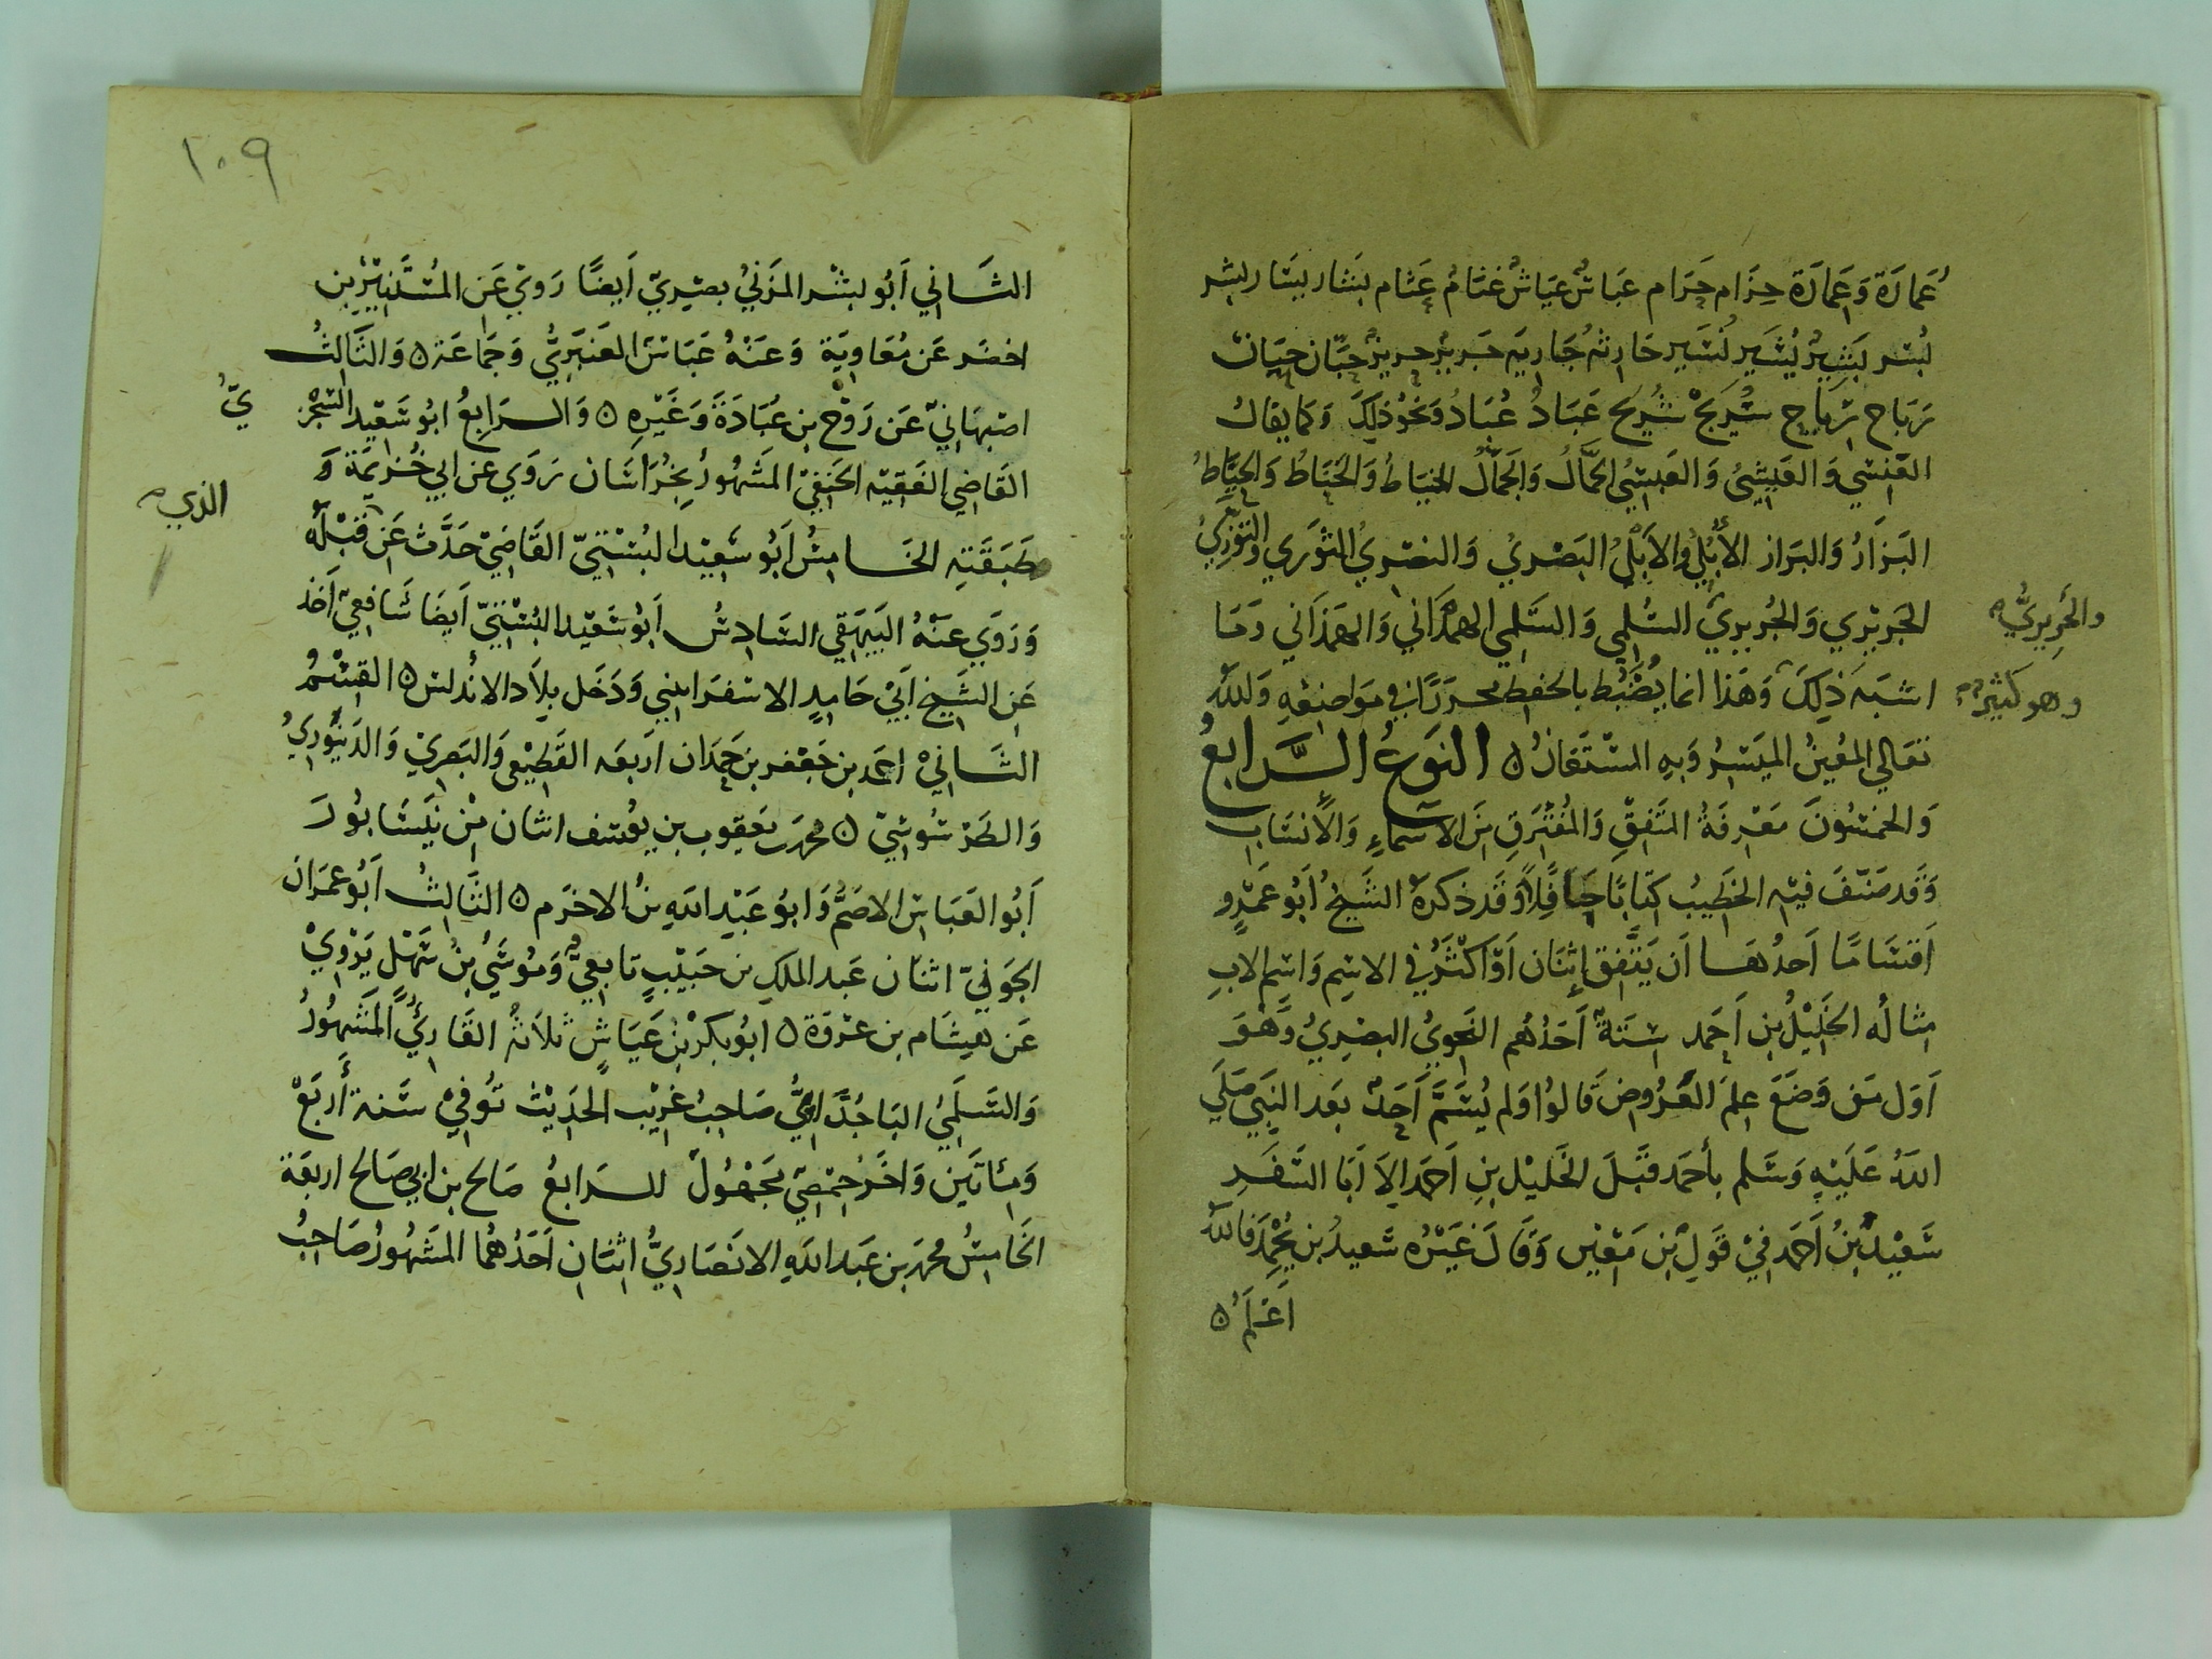 عُمارَة وَعِمَارَة حِزَام حَرَام عَبَاسٌ عَيَاشٌ غَنَّامُ عَثَّام بَشَار يسَار بِشر
بُسْر بَشِيرُ يُسَير نُسَير حَارِثَه جَارِيَه جَرِير حَرِيزٌ حِبَّان حَيَان
رَبَاح رِيَاح سُرَيجْ شُرَيح عَبَادُ عُبَادُ وَنَحُوذَلِكَ وَكَما يقَالُ
العَنْسِي وَالعَيشِيُ وَالعَبسِيُ الحَمَّالُ وَالجَمَّالُ الخيَاطُ وَالحَنَّاطُ وَالخَبَّاطُ
البَزَارُ وَالبَزاز الأُبُلِّي وَالأَيلِي البَصْرِي وَالنصْرِي الثَورَي وَالتَّوَّزِيُ
الجَريْرِي وَالجُرَيرِيِ السُّلَمِي وَالسَّلَمِي الهمْدَانِي وَالهَمَذاني وَمَا
والحَرِيرِيُّ
اشبَهَ ذَلِكَ وَهَذا انما يُضْبَط بالحفظ محررًا في مَوَاضِعِهِ وَللهُ
وهو كثير
تعَالي المعُينُ الميَسِرُ وَبِهِ المسْتَعَانُ ۞ النَوعُ الرَّابعُ
وَالخمسُونَ مَعْرِفَةُ المتَفِقِ وَالمُفْتَرِقِ مِنَ الأسَماءِ وَالأَنسَابِ
وَقَد صَنّفَ فيْهِ الخَطِيبُ كتَابًا حَافِلاً وَقَد ذكرَهُ الشَيخُ أَبُو عَمْرٍو
أقسَامًا أحَدُهَا أن يَتَّفِق اِثْنَان أوَأكْثَرُ في الاسِم وَاسِم الابِ
مِثالُه الخَلِيْلُ بِن أَحمد سِتَةٌ أَحَدُهُم النَحويُ البصْرِيُ وَهْوَ
أَوَل مَن وَضَعَ عِلمَ العَرُوض قَالُوا وَلم يُسَمَّ أَحَدٌ بَعد النَبِي صَلَي
اللهُ عَلَيْهِ وَسَلم بأحمَد قبَلَ الخَليْل بنِ أحمَد إلاَ أَبَا السَفَرِ
سَعيْد بنُ أَحمَد فيْ قَولِ بْنِ مَعيْن وَقَالَ غيَرُه سَعيدُ بن يُحْمِد فَاللهُ
أَعْلمُ ۞
١٠٩
الثَاني أَبُو بشْر المزَنيُ بصْرِيّ أيضًا رَويْ عَن المُسْتَنِيْرِ بن
اخضَر عَن مُعَاوِيَة وَعَنْهُ عَبَاسٌ العَنبَرِيُّ وَجَماعَة ۞ وَالثَّالِثُ
اصْبهَانيّ عَن رَوْح بن عُبَادَةَ وَغَيرِه ۞ وَالرَابِعُ ابُو سَعِيد السِّجْز
يّ
القَاضِي الفَقِيْه الحَنَفِيّ المَشهُورُ بِخُرَاسَان رَوَي عن ابي خُزيمَة وَ
طَبَقَتِه الخَامِسُ أبُو سَعِيْد البُسْتِيّ القَاضِيْ حَدَّثَ عَن قَبْلَهُ
الذي
وَرَوَي عَنْهُ البَيهَقِي السَّادِسُ أَبُو سَعَيْد البُسْتِيّ أَيضَا شَافِعيّ أخَذ
عَن الشَيخ أبَيْ حَامِدٍ الاسفرَاييني وَدَخَل بِلاَد الأندلس ۞ القِسْمُ
الثَاني احمَد بن جَعْفر بن حَمدَان اَربعَه القَطِيْعي وَالبَصريْ وَالدَيْنَورِيُ
وَالطَرْسُوسيّ ۞ محمَد بن يعَقوب بن يوُسف اثنَان مِنْ نَيْسَابُورَ
أَبُو العَبَاسِ الأصَمُّ وَأبُو عَبْدِ اللهِ بنُ الاخرَم ۞ الثَالِثُ أَبُو عمرَان
الجَونيّ اثنَان عَبد الملكِ بن حَبيْبٍ تَابِعيُّ وَمُوسَي بنُ سَهْلٍ يَرْوِيْ
عَن هِشَام بن عروَة ۞ ابوُ بكر بنُ عَيَاشٍ ثَلاثَة القَارِئُ المَشهُورُ
وَالسُّلَمِيُ البَاجُدَّائيُّ صَاحِبُ غَرِيْب الحَدِيْث تُوفيْ سَنةَ أَرَبَعْ
وَمئَاتَيَن وَاخَرُ حِمْصِيّ مَجَهُولٌ للرَابعُ صَالح بن ابي صَالح اربعَة
الخَامِسُ محمَد بن عَبد اللهِ الانصَارِيُّ اثنَانِ أَحَدُهُمَا المَشهُورُ صَاحِبُ